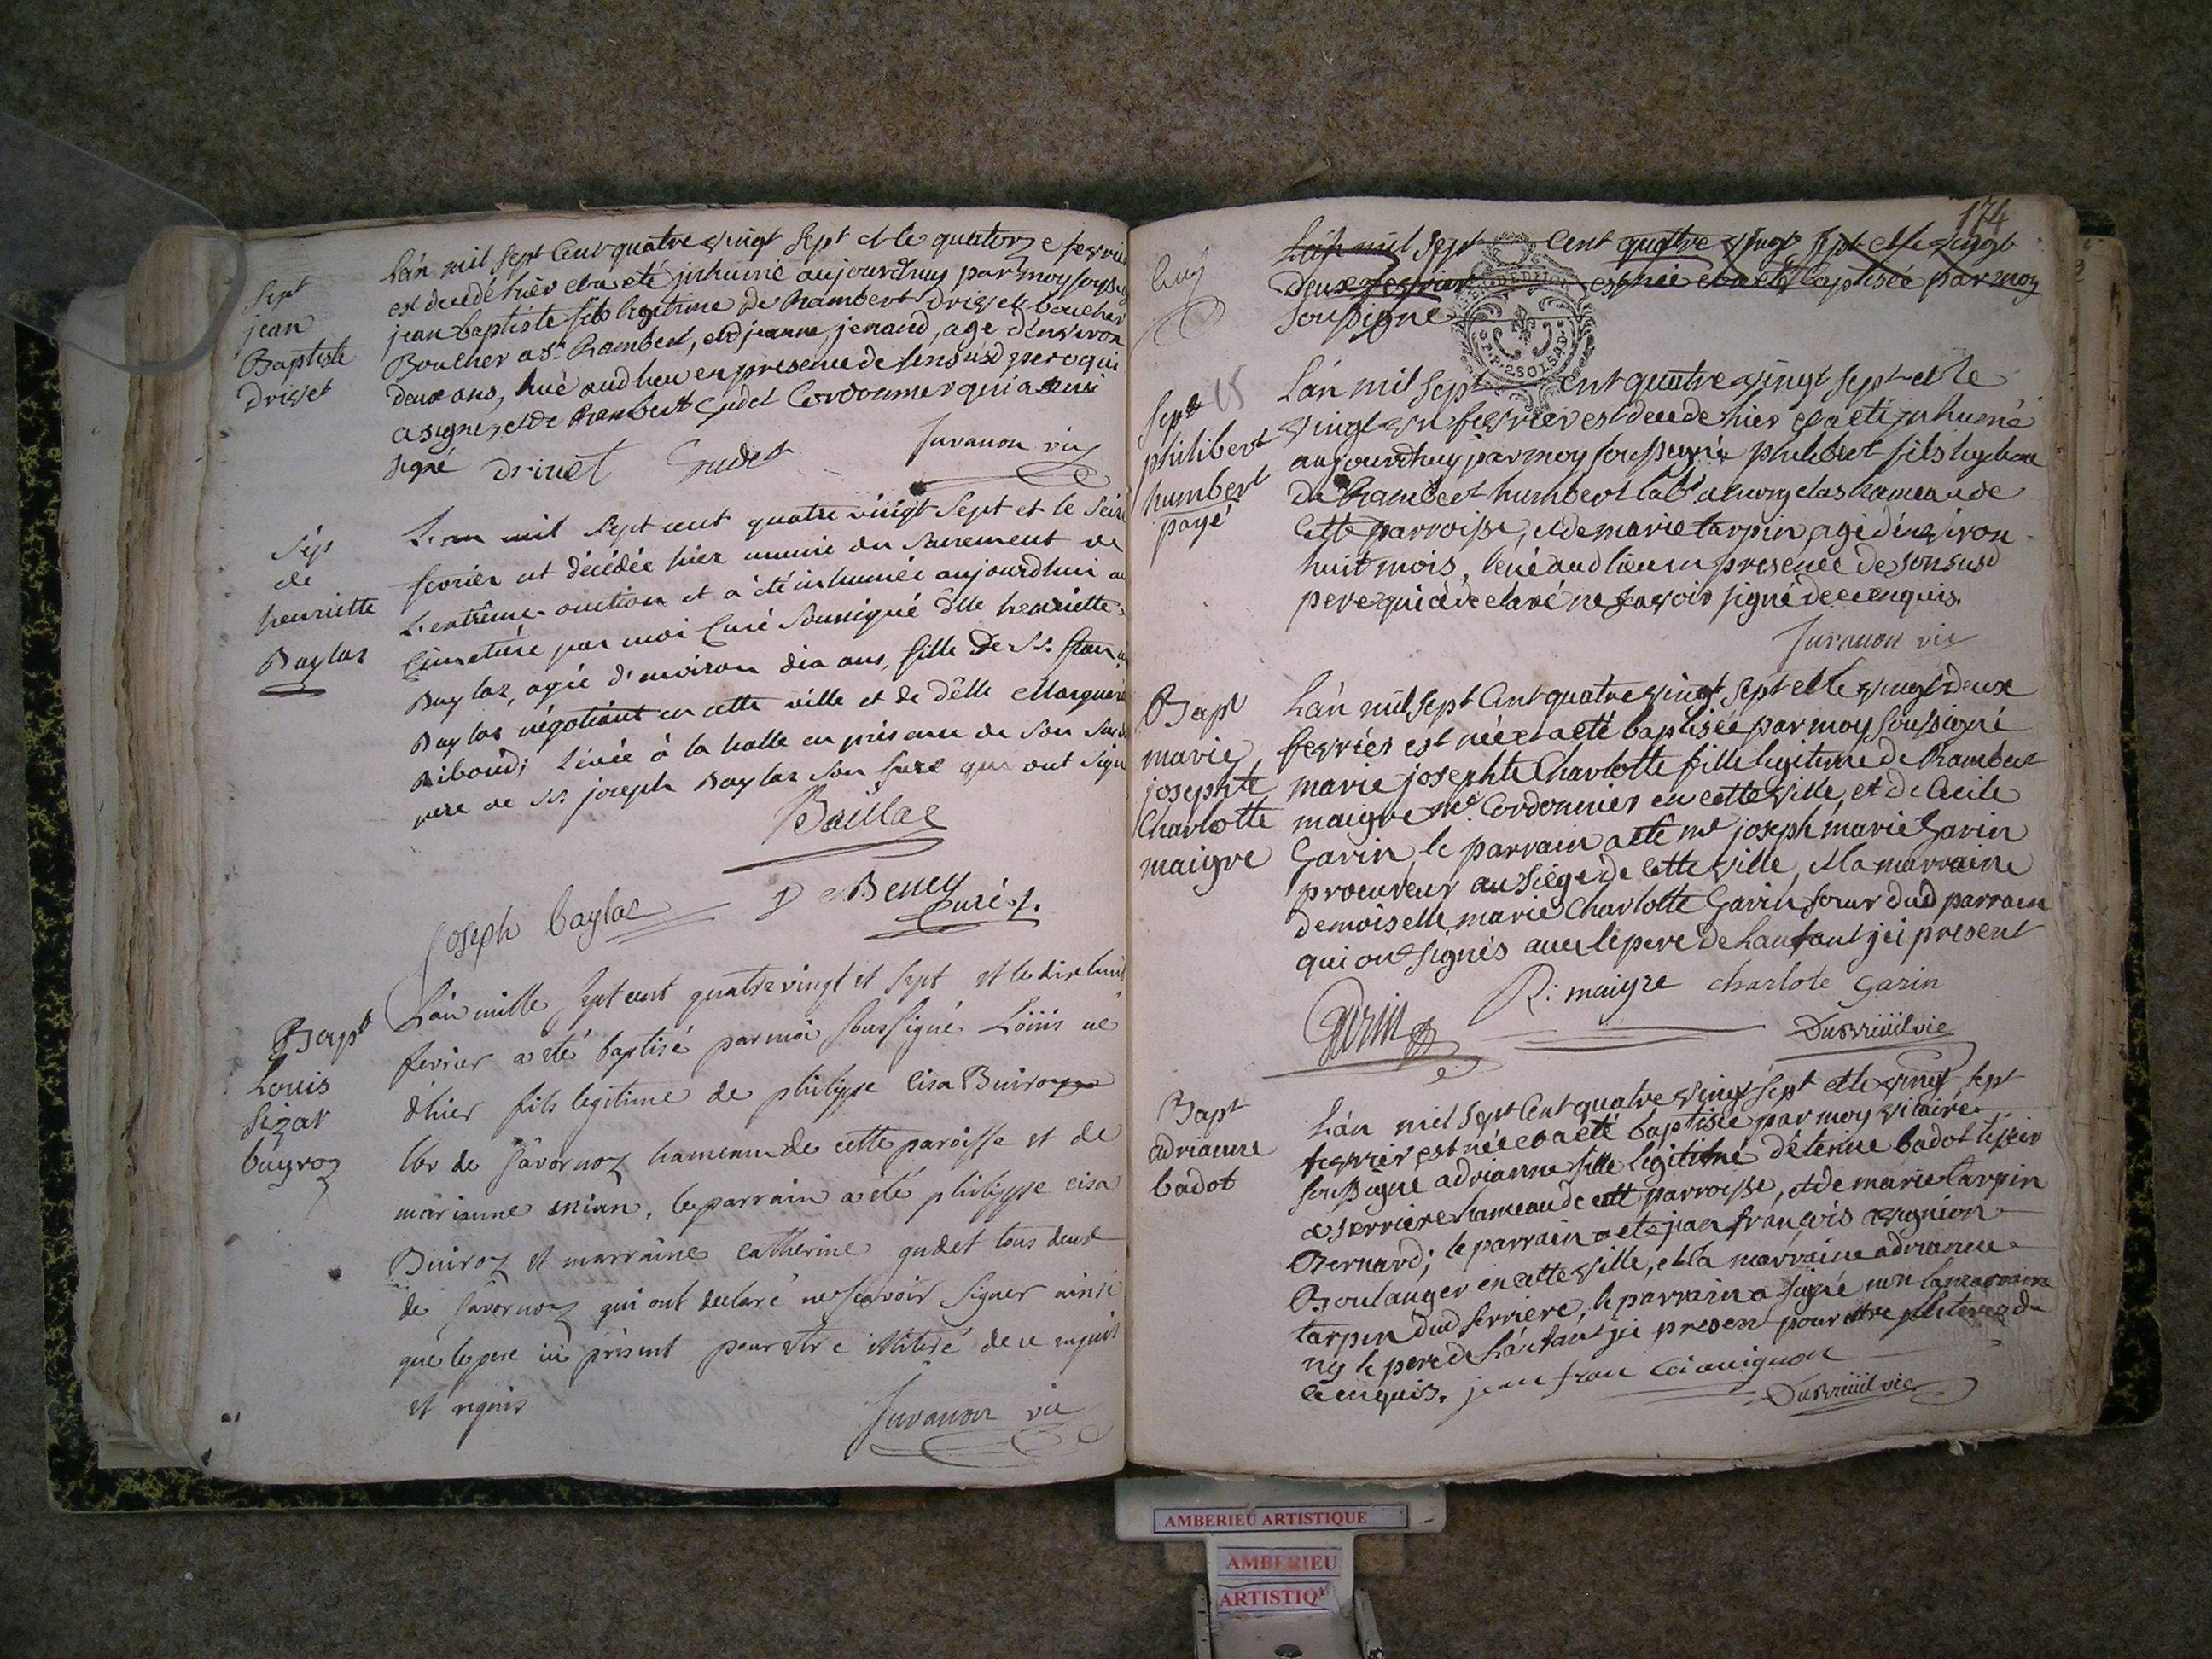 Sept
jean
Baptiste
drivet
L'an mil sept Cent quatre vingt sept et le quatorze fevrier
est decedé hier et a eté inhumé aujourdhuy par moy
jean baptiste fils legitime de Rambert drivet boucher
Boucher a St Rambert, et d jeanne jenaud, agé d'environ
deux ans, levé aud lieu en presence de sensusd pere qui
a signé, et de Rambert Gudet Cordonnier qui a aussi
signé drivet Gudet Juvanon vic
Sép
de
henriette
Baylac
L'an mil sept cent quatre vingt sept et le
fevrier est décédée hier munie du sacrement de
L'extrême-onction et a été inhumée aujourdhui au
Cimetiere par moi Curé soussigné dlle henriette
Baylac, agée d'environ dix ans, fille de Sr.
Baylac négotiant en cette ville et de délle
Riboud; levée à la halle en présence de son
pere de Sr joseph Baylac son frere qui ont signé
Baillac
Joseph baylac De Beney
Curé.
Bapt
Louis
Sizar
buyroz
L'an mille sept cent quatre vingt et sept et le dix huit
fevrier a été baptisé par moi soussigné Loüis né
d'hier fils legitime de philippe cisa Buiroz
lbr de Javornoz hameau de cette paroisse et de
marianne le parrain a été philippe cisa
Buiroz et marraine catherine gudet tous deux
de Javornoz qui ont declaré ne scavoir signer ainsi
que le pere ici présent pour etre illiteré de ce enquis
et requis
Juvanon vic
174
L'an mil sept Cent quatre vingt sept et le vingt
deux fevrier est née et a eté baptisée par moy
soussigné
Sept 15
philibert
humbert
payé
L'an mil sept cent quatre vingt sept et le
vingt un fevrier est decede hier et a eté inhumé
aujourdhuy par moy soussigné philibert fils legitime
de Rambert humbert labr hameau de
cette parroisse, et de marie tarpin, agé d'environ
huit mois, levé aud lieu en presence de son susd
pere qui a declaré ne scavoir signé de ce enquis.
Juvanon vic
Bapt
marie
josephte
Charlotte
maigre
L'an mil sept Cent quatre vingt sept et le vingt deux
fevrier est née et a eté baptisée par moy soussigné
marie josephte Charlotte fille legitime de Rambert
maigre me Cordonnier en cette ville, et de Cecile
Garin, le parrain a eté me joseph marie Garin
procureur au siége de cette ville, et la marraine
demoiselle marie Charlotte Garin sœur dud parrain
qui ont signés avec le pere de L'anfant ici present
Garin R: maigre charlote Garin
Dubreüil vic
Bapt
adrianne
badot
L'an mil sept Cent quatre vingt sept et le vingt sept
fevrier est née et a eté baptisée par moy vicaire
soussigné adrianne fille légitime d'étenne badot
a serriere hameau de cette parroisse, et de marie tarpin
Bernard; le parrain a eté jean françois avignion
Boulanger en cette ville, et la marraine adrianne
tarpin dud serriere, le parrain a signé non la marraine
ny le pere de L'anfant ici present pour être
ce enquis. jean fran
Dubreüil vic
AMBERIEU ARTISTIQUE
AMBERIEU
ARTISTIQ